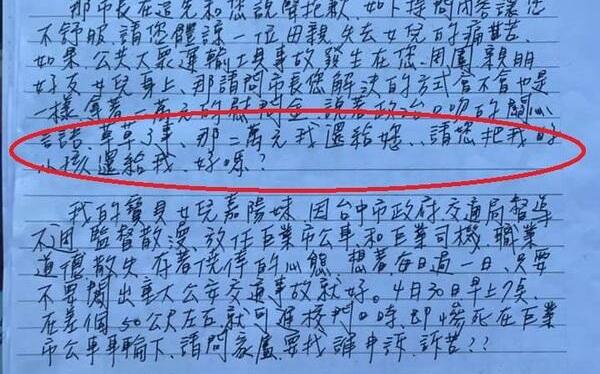 那市長在這先和您說聲抱歉,如下提問內容讓您
不舒服,請您體諒一位母親失去女兒的痛苦.
如果公共大眾運輸工具事故發生在您.周圍親朋
好友女兒身上、那請問市長您解決的方式會不會也是
一樣.拿著一萬元的慰問金.說著政治口吻的關心
言語.草草了事、那二萬元我還給妳、請您把我的
小孩還給我、好嗎?
我的寶貝女兒嘉陽妹、因台中市政府交通局督導
不週、監督散漫、放任巨業市公車、和巨業司機、職業
道德散失、存著僥倖的心態、想著每日過一日、只要
不要鬧出重大公安交通事故就好。4月30日早上7點.
在差個50公尺左右就可進校門口時、即慘死在巨業
市公車車輪下、請問家屬要找誰申訴、訴苦??